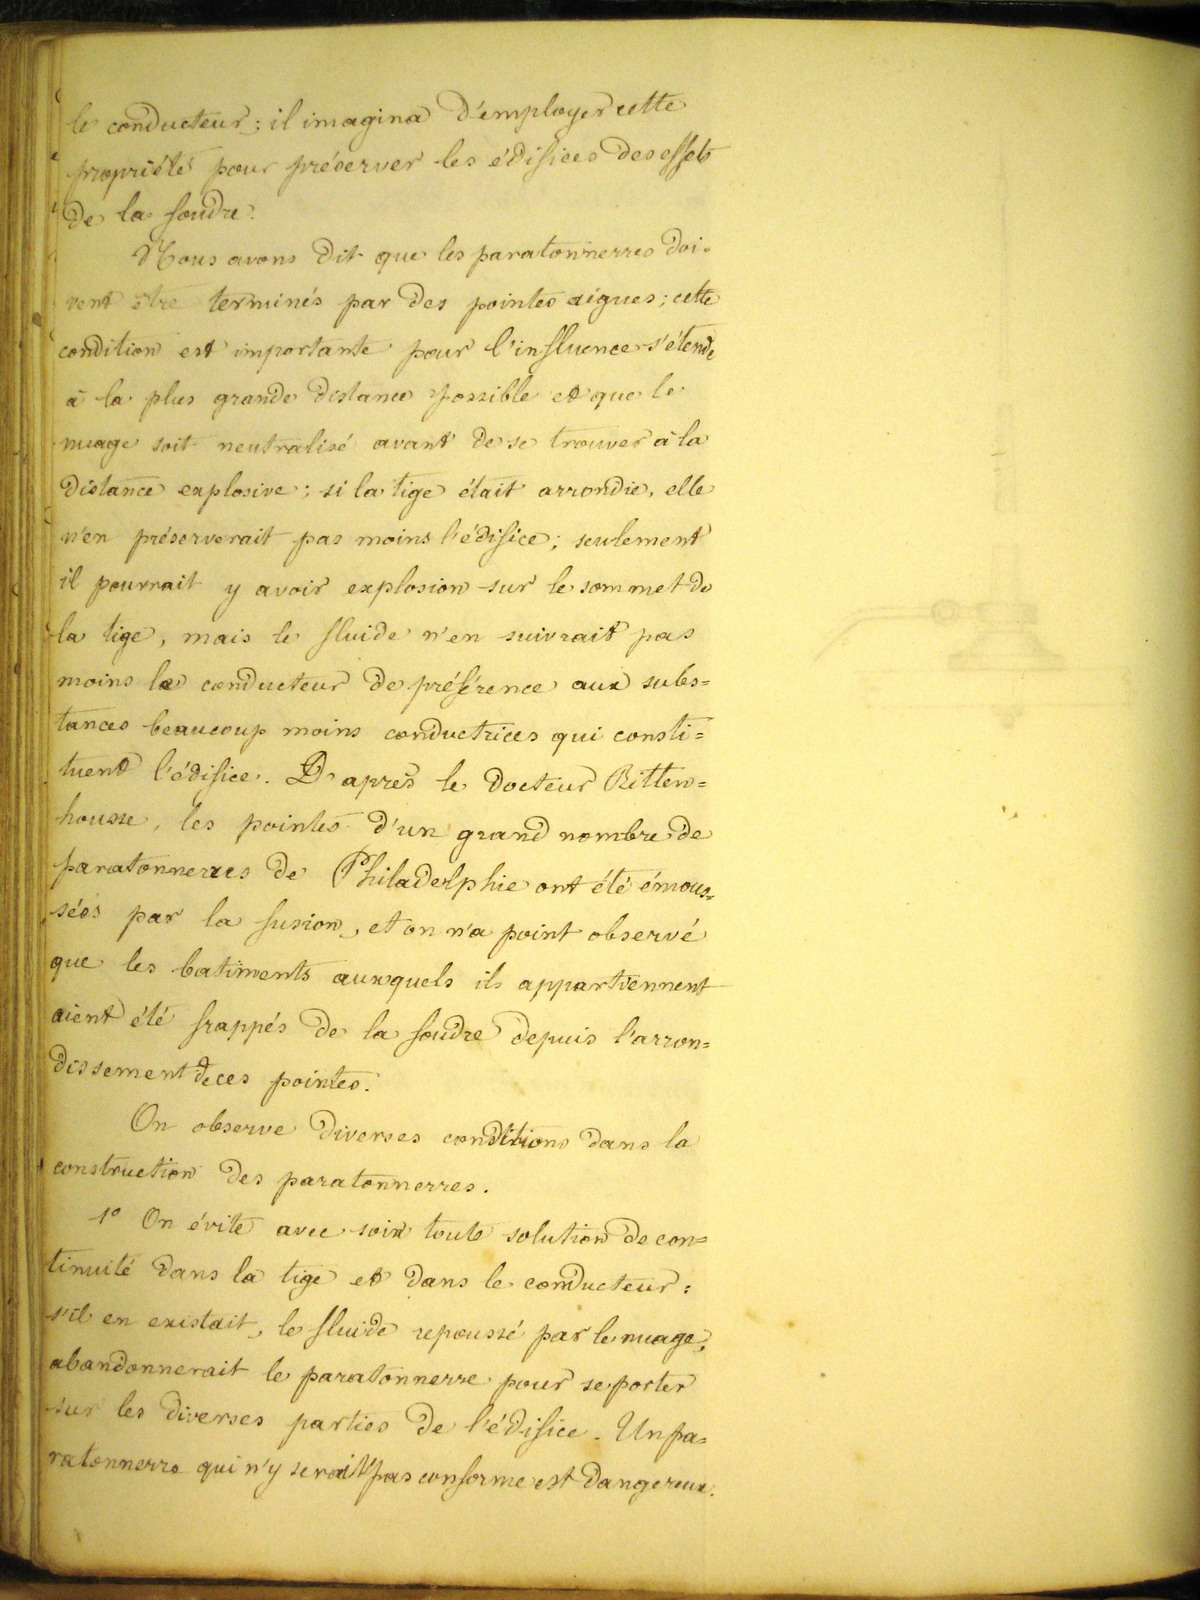 le conducteur; il imagina d'employer cette
propriété pour préserver les édifices des effets
de la foudre.
Nous avons dit que les paratonnerres doi-
vent être terminés par des pointes aigues; cette
condition est importante pour l'influence s'étende
à la plus grande distance possible et que le
nuage soit neutralisé avant de se trouver à la
distance explosive; si la tige était arrondie, elle
n'en préserverait pas moins l'édifice; seulement
il pourrait y avoir explosion sur le sommet de
la tige, mais le fluide n'en suivrait pas
moins le conducteur de préférence aux subs=
tances beaucoup moins conductrices qui consti=
tuent l'édifice. D'après le docteur Ritten=
housse, les pointes d'un grand nombre de
paratonnerres de Philadelphie ont été émous=
sées par la fusion, et on n'a point observé
que les batiments auxquels ils appartiennent
aient été frappés de la foudre depuis l'arron=
dissement de ces pointes.
On observe diverses conditions dans la
construction des paratonnerres.
1° On évite avec soin toute solution de con=
tinuité dans la tige et dans le conducteur:
s'il en existait, le fluide repoussé par le nuage,
abandonnerait le paratonnerre pour se porter
sur les diverses parties de l'édifice. Un pa=
ratonnerre qui n'y serait pas conforme est dangereux.